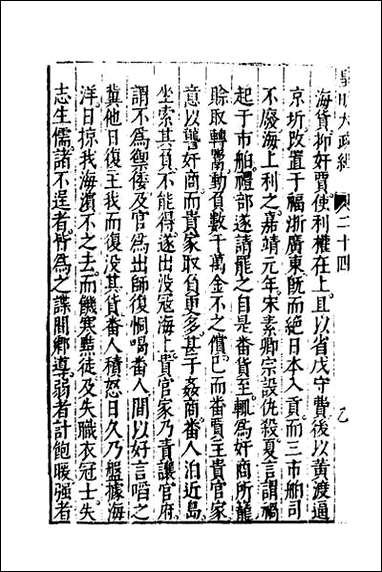 皇明大政紀 卷二十四 乙
海貨抑奸賈使利權在上且以省戍守費後以黃渡逼
京圻改置于福浙廣東既而絕日本入貢而三市舶司
不廢海上利之嘉靖元年宋素卿宗設仇殺夏言謂禍
起于市舶禮部遂請罷之自是番貨至輒為奸商所籠
賒取轉鬻動負數千萬金不之償已而番賈至貴官家
意以讐奸商而貴家取負更多甚于姦商番人泊近島
坐索其負不能得遂出没冦海上貴官家乃責讓官府
謂不為禦倭及官為出師復恫喝番人間以好言㗖之
冀他日復王我而復没其貨番人積怒日久乃盤據海
洋日掠我海濱不之去而饑寒黠徒及失職衣冠士失
志生儒諸不逞者皆為之諜間鄉導弱者計飽暖强者